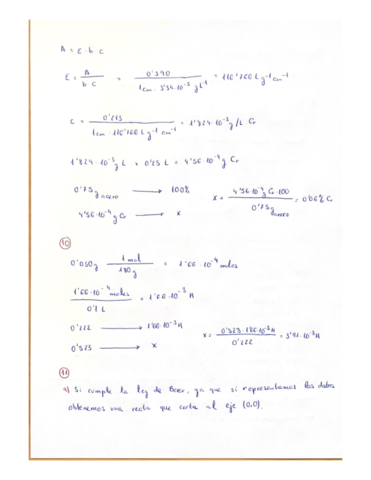 A = E · b · c
E = A / b c = 0'390 / 1 cm · 3'34·10⁻³ g L⁻¹ = 116'766 L g⁻¹ cm⁻¹
c = 0'213 / 1cm · 116'766 L g⁻¹ cm⁻¹ = 1'824·10⁻³ g/L Cr
1'824·10⁻³ g L × 0'25 L = 4'56·10⁻⁴ g Cr
0'75 g acero → 100%
4'56·10⁻⁴ g Cr → x
x = 4'56·10⁻⁴ g Cr · 100 / 0'75 g acero = 0'06% Cr
10
0'030 g 1 mol / 180 g = 1'66·10⁻⁴ moles
1'66·10⁻⁴ moles / 0'1 L = 1'66·10⁻³ M
0'222 → 1'66·10⁻³ M
0'523 → x
x = 0'523 · 1'66·10⁻³ M / 0'222 = 3'91·10⁻³ M
11
a) Si cumple la ley de Beer, ya que si representamos los datos
obtenemos una recta que corta al eje (0,0).